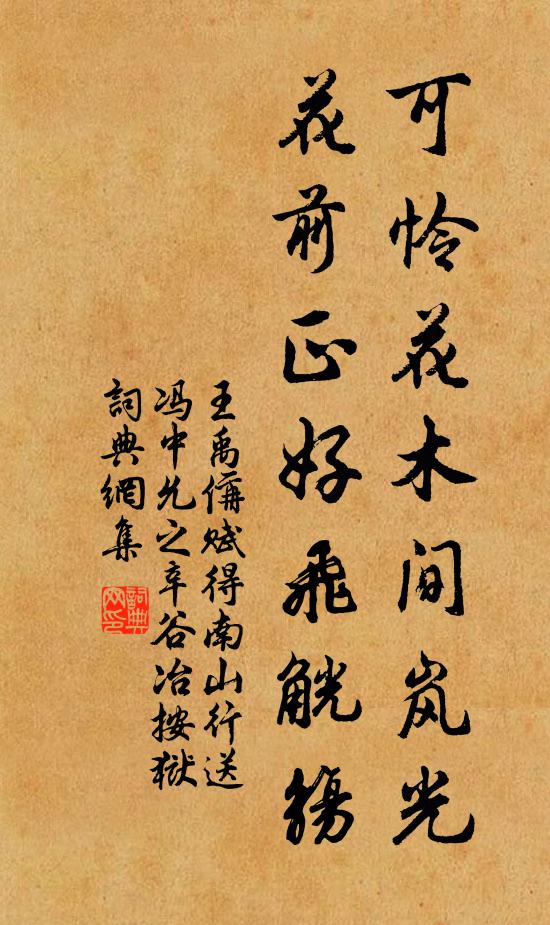 可怜花木间岚光
花前正好飛觥觞
王禹偁赋得南山行送
冯中允之辛谷冶按獄
詞典網集
詞典网印